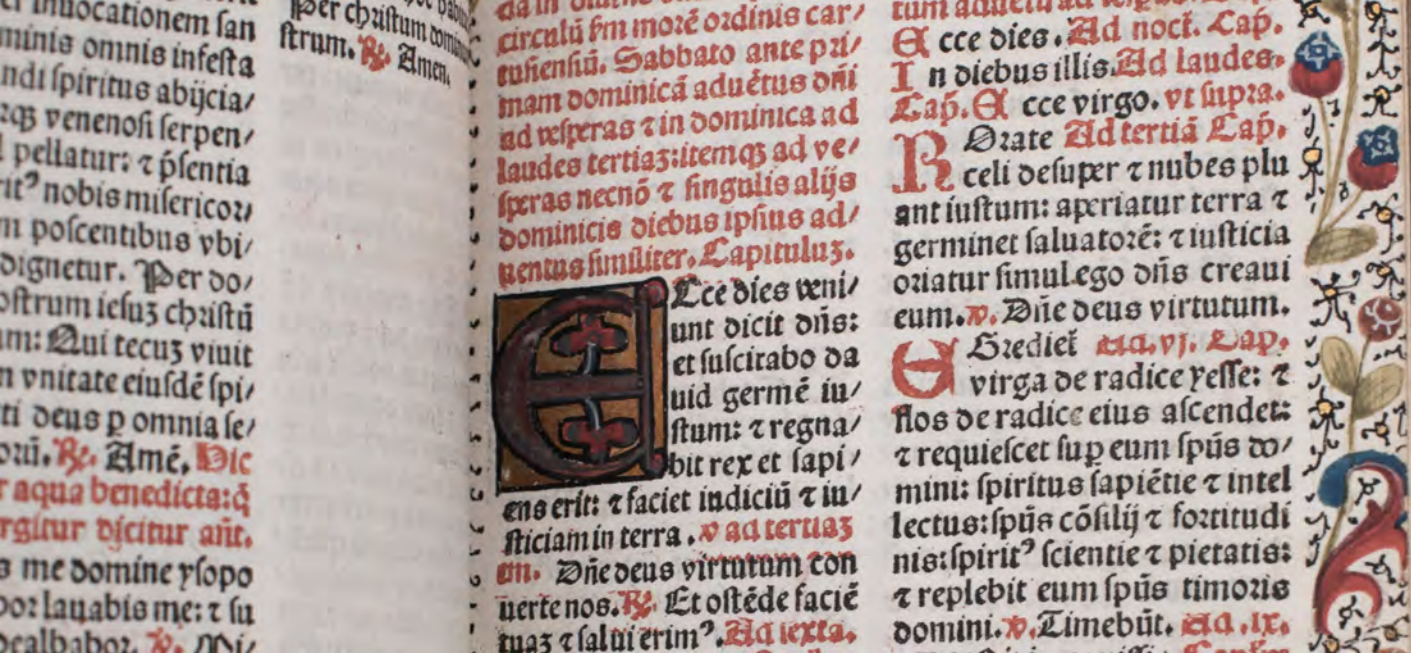 inuocationem san
minis omnis infesta
ndi spiritus abijcia/
rqꝫ venenosi serpen/
pellatur: ⁊ p̄sentia
rit⁹ nobis misericor/
m poscentibus vbi/
dignetur. Per do/
ostrum iesuꝫ christū
um: Qui tecuꝫ viuit
n vnitate eiusdē spi/
ti deus ꝑ omnia se/
orū. ℟. Amē. Dic
r aqua benedicta: q̄
rgitur dicitur añt.
s me domine ysopo
bor lauabis me: ⁊ su
ealbabor. ℣. Mi/
Per christum domi
strum. ℟. Amen.
circulū ẜm morē ordinis car/
tusiensiū. Sabbato ante pri/
mam dominicā aduētus dñi
ad vesperas ⁊ in dominica ad
laudes tertiaꝫ: itemqꝫ ad ve/
speras necnō ⁊ singulis alijs
dominicis diebus ipsius ad/
uentus similiter. Capituluꝫ.
ECce dies veni/
unt dicit dñs:
et suscitabo da
uid germē iu/
stum: ⁊ regna/
bit rex et sapi/
ens erit: ⁊ faciet iudiciū ⁊ iu/
sticiam in terra. ℣ ad tertiaꝫ
m. Dñe deus virtutum con
uerte nos. ℟. Et ostēde faciē
tuaꝫ ⁊ salui erim⁹. Ad sexta.
Ecce dies. Ad noct. Cap.
In diebus illis. Ad laudes.
Cap. Ecce virgo. vt supra.
ROrate Ad tertiā Cap.
celi desuper ⁊ nubes plu
ant iustum: aperiatur terra ⁊
germinet saluatorē: ⁊ iusticia
oriatur simul ego dñs creaui
eum. ℣. Dñe deus virtutum.
EGrediet Ad .vj. Cap.
virga de radice yesse: ⁊
flos de radice eius ascendet:
⁊ requiescet suꝑ eum spūs do/
mini: spiritus sapiētie ⁊ intel
lectus: spūs cōsilij ⁊ fortitudi
nis: spirit⁹ scientie ⁊ pietatis:
⁊ replebit eum spūs timoris
domini. ℣. Timebūt. Ad .ix.